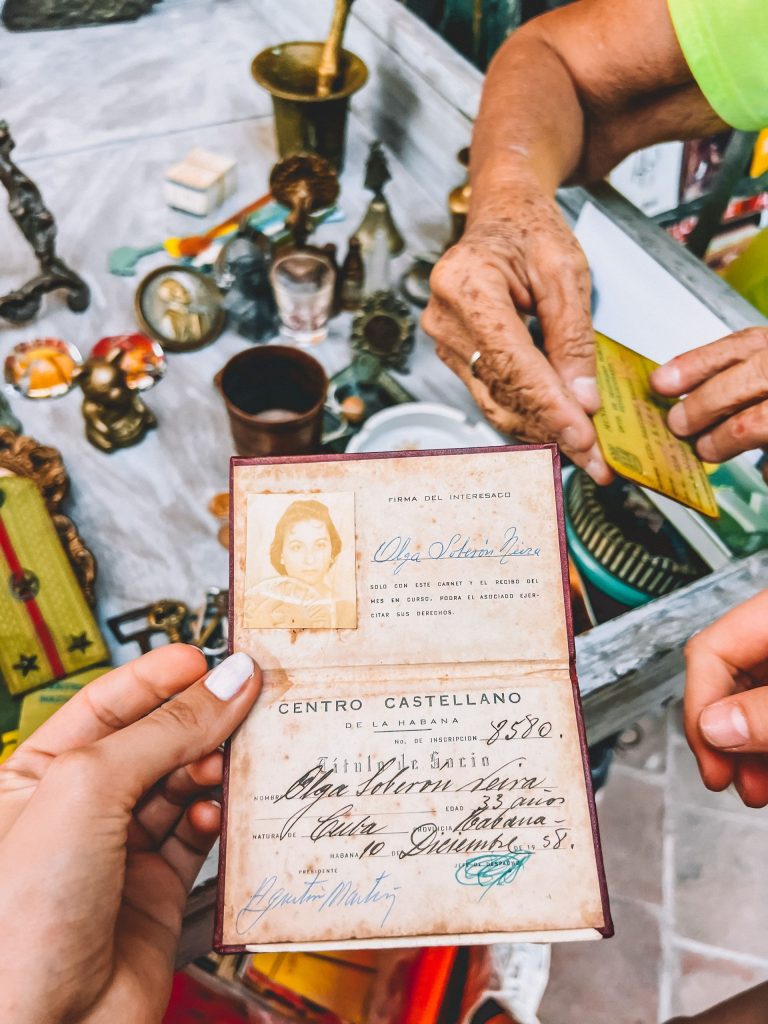 FIRMA DEL INTERESADO
Olga Soberón Neira
SOLO CON ESTE CARNET Y EL RECIBO DEL
MES EN CURSO, PODRA EL ASOCIADO EJER-
CITAR SUS DERECHOS.
CENTRO CASTELLANO
DE LA HABANA
No. DE INSCRIPCIÓN 8580.
Título de Socio
NOMBRE Olga Soberón Neira
EDAD 33 años
NATURAL DE Cuba PROVINCIA Habana
HABANA 10 DE Diciembre DE 1958.
PRESIDENTE JEFE DE DESPACHO
Agustin Martin